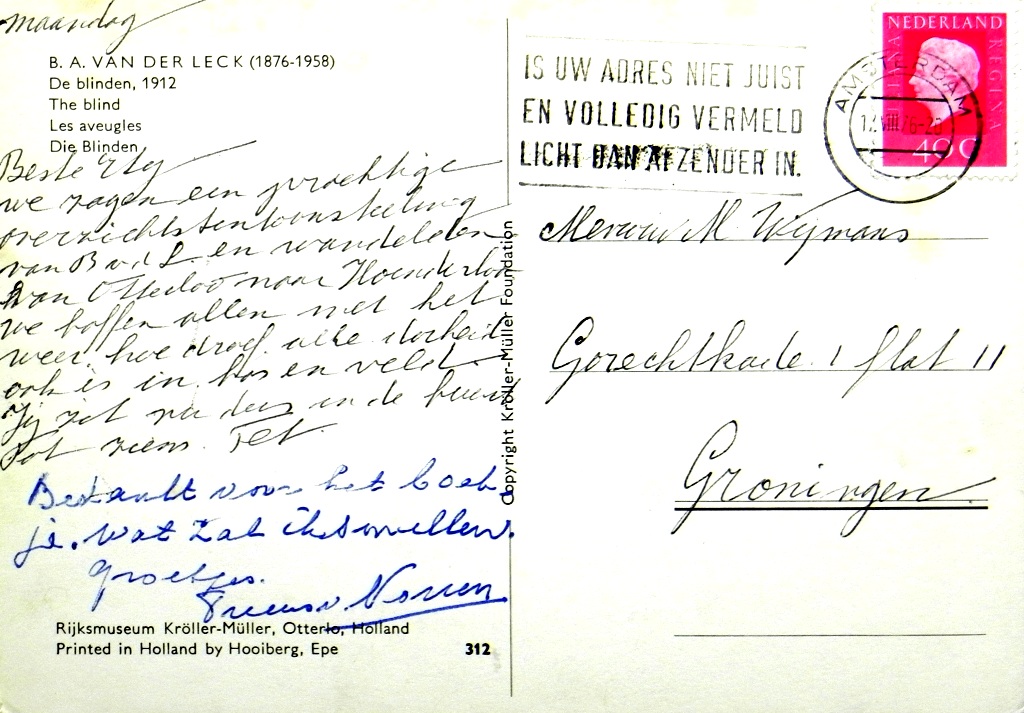 maandag
B. A. VAN DER LECK (1876-1958)
De blinden, 1912
The blind
Les aveugles
Die Blinden
Beste
we zagen een prachtige
overzichtstentoonstelling
van B v d L en wandelden
van Otterloo naar Hoenderloo
we boffen allen met het
weer. hoe droef die dorheid
ook is in bos en veld.
Jij zit nu dus in de buurt
Tot ziens. Tet.
Bedankt voor het boek
je. wat zal ik smullen.
groetjes.
Truus v. Norren
Rijksmuseum Kröller-Müller, Otterlo, Holland
Printed in Holland by Hooiberg, Epe
312
Copyright Kröller-Müller Foundation
IS UW ADRES NIET JUIST
EN VOLLEDIG VERMELD
LICHT DAN AFZENDER IN.
AMSTERDAM
VIII 76
NEDERLAND
JULIANA REGINA
40 C
M. Wijmans
Gorechtkade 1 flat 11
Groningen.